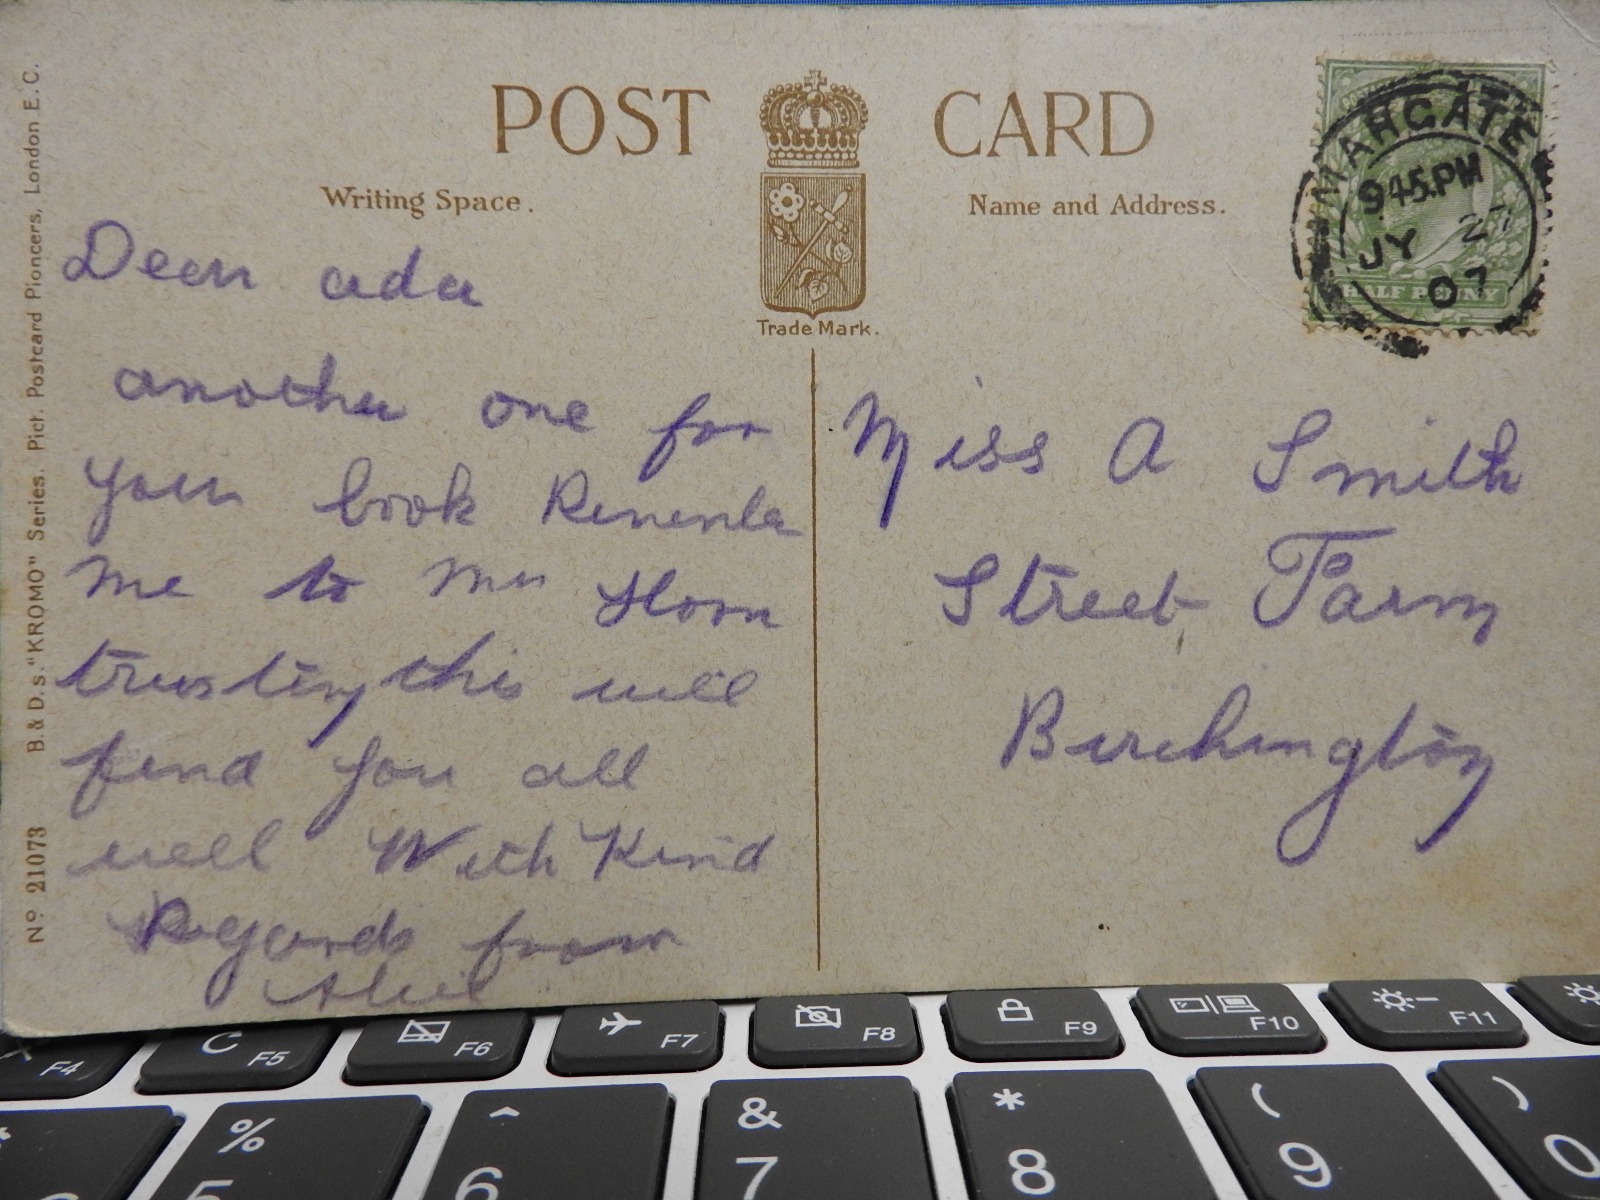 POST CARD
Writing Space.
Name and Address.
Trade Mark.
MARGATE
9.45.PM
JY 27
07
HALF PENNY
Dear ada
another one for
your book Remember
me to Mrs Horn
trusting this will
find you all
well With Kind
Regards from
Miss A Smith
Street Farm
Birchington
No 21073 B. & D.s. "KROMO" Series. Pict. Postcard Pioneers, London E.C.
F4
F5
F6
F7
F8
F9
F10
F11
%
5
^
6
&
7
*
8
(
9
)
0